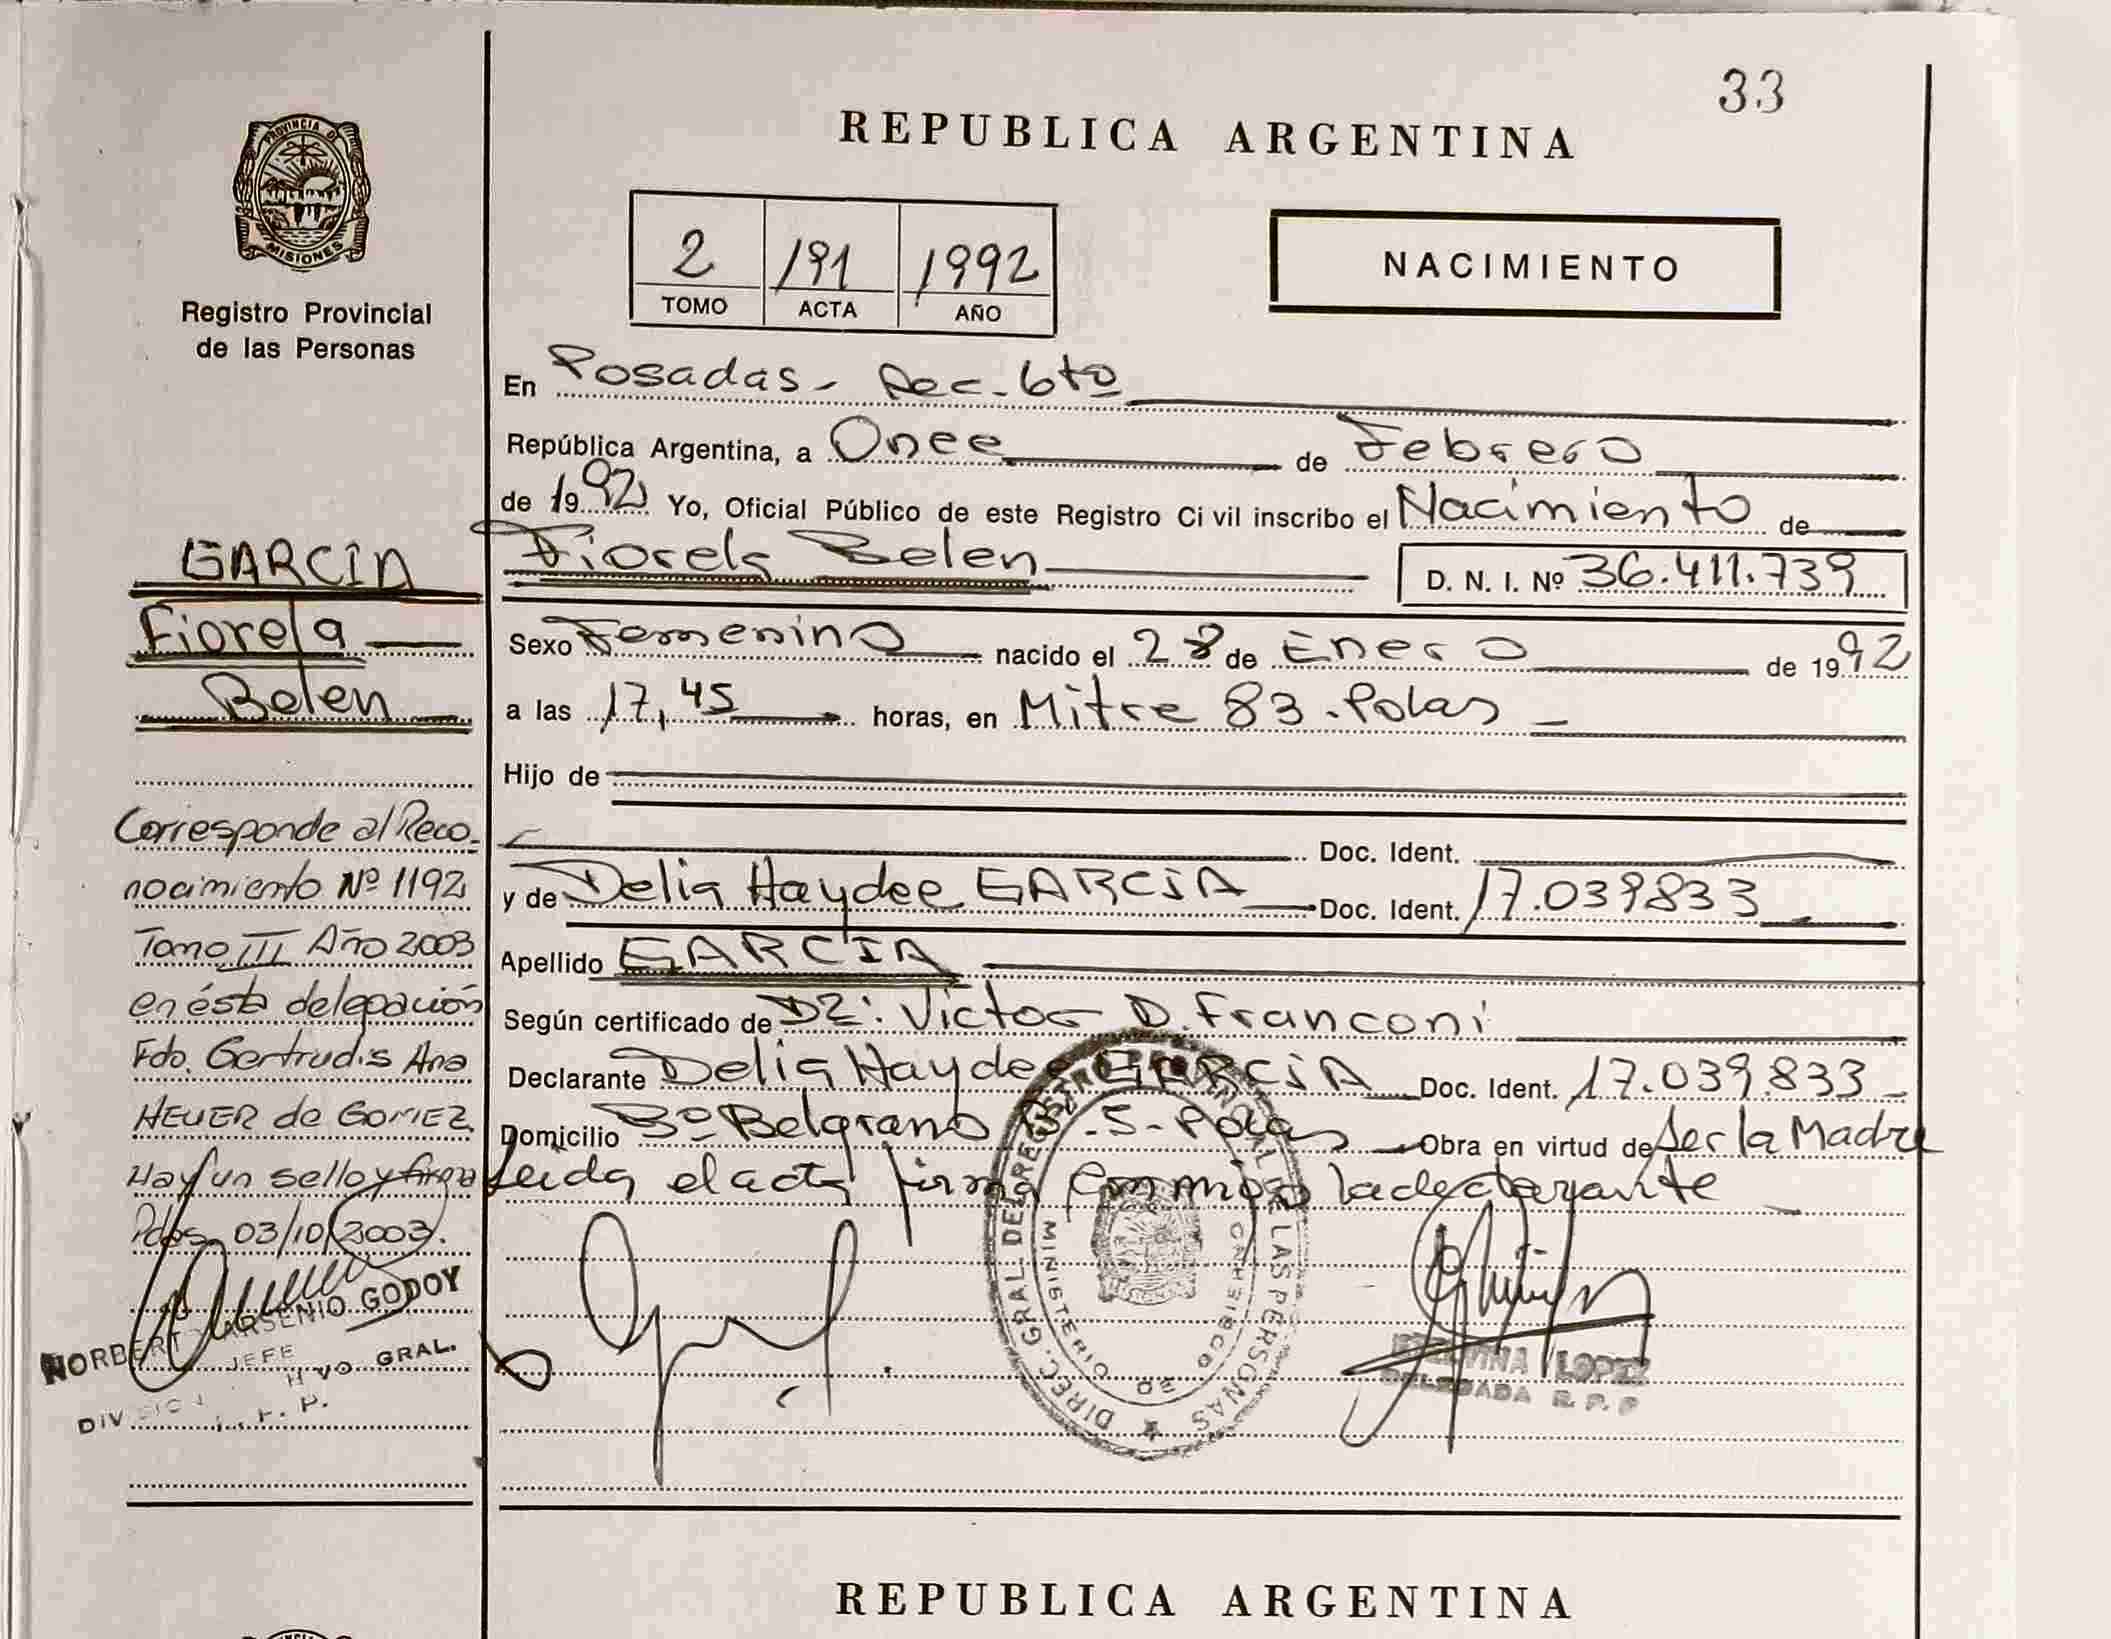 33
PROVINCIA DE
MISIONES
Registro Provincial
de las Personas
REPUBLICA ARGENTINA
2 191 1992
TOMO ACTA AÑO
NACIMIENTO
En Posadas - Sec. 6to
República Argentina, a Once de Febrero
de 1992 Yo, Oficial Público de este Registro Civil inscribo el Nacimiento de
Fiorela Belen D. N. I. Nº 36.411.739
Sexo Femenino nacido el 28 de Enero de 1992
a las 17,45 horas, en Mitre 83 - Pdas
Hijo de
Doc. Ident.
y de Delia Haydee GARCIA Doc. Ident. 17.039833
Apellido GARCIA
Según certificado de Dr: Victor D. Franconi
Declarante Delia Haydee GARCIA Doc. Ident. 17.039.833
Domicilio Bº Belgrano .S - Pdas Obra en virtud de Ser la Madre
Leida el acta firma conmigo la declarante
GARCIA
Fiorela
Belen
Corresponde al Reco-
nocimiento Nº 1192
Tomo III Año 2003
en ésta delegación
Fdo. Gertrudis Ana
HEUER de GOMEZ.
Hay un sello y firma
Pdas. 03/10/2003.
NORBERTO ARSENIO GODOY
JEFE
GRAL.
DIREC. GRAL. DEL REGISTRO PROVINCIAL DE LAS PERSONAS
MINISTERIO DE GOBIERNO
LOPEZ
DELEGADA R. P. P
REPUBLICA ARGENTINA